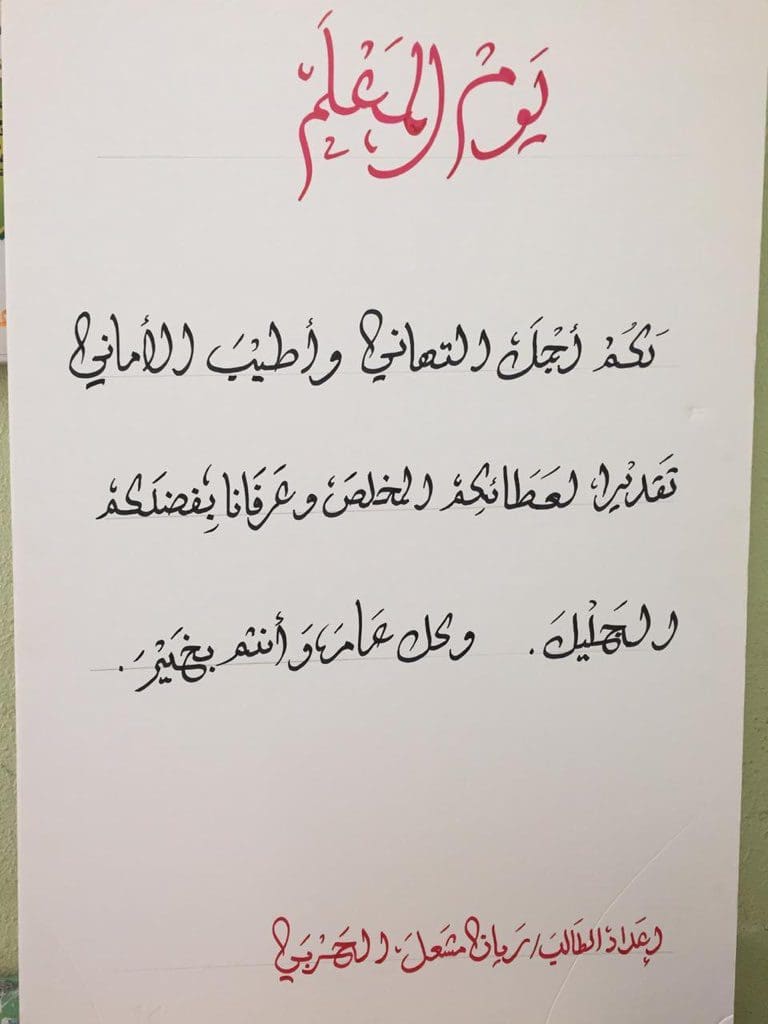 يَوْمُ المَعَلِّم
لَكُمْ أَجْمَلَ التهاني وأطيْبَ الأماني
تَقديْراً لعَطَائكِمْ المخلصَ وعَرفَانا بِفضلَكمْ
الجَلْيلَ. وكل عَام وَأنتم بخَيْرَ.
إعَدادْ الطَالبَ/رَيان مشَعلَ الحَرْبَي